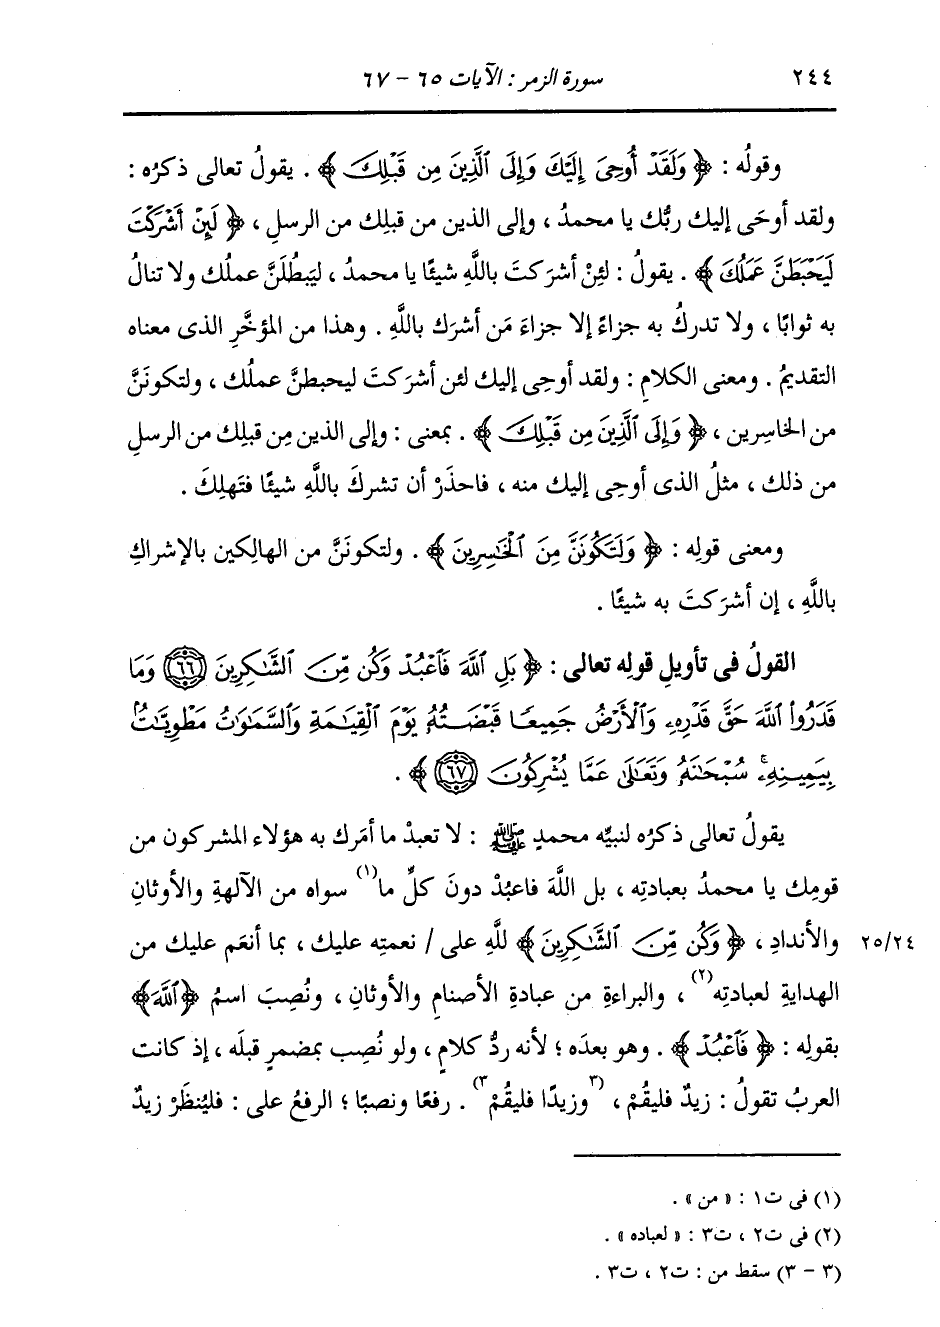 ٢٤٤ سورة الزمر : الآيات ٦٥ - ٦٧
وقولُه : ﴿ وَلَقَدْ أُوحِيَ إِلَيْكَ وَإِلَى ٱلَّذِينَ مِن قَبْلِكَ ﴾ . يقولُ تعالى ذكرُه :
ولقد أوحَى إليك ربُّك يا محمدُ ، وإلى الذين من قبلِك من الرسلِ ، ﴿ لَئِنْ أَشْرَكْتَ
لَيَحْبَطَنَّ عَمَلُكَ ﴾ . يقولُ : لئِنْ أشرَكتَ باللَّهِ شيئًا يا محمدُ ، ليَبطُلَنَّ عملُك ولا تنالُ
به ثوابًا ، ولا تدركُ به جزاءً إلا جزاءَ مَن أشرَك باللَّهِ . وهذا من المؤخَّرِ الذى معناه
التقديمُ . ومعنى الكلامِ : ولقد أوحِى إليك لئن أشرَكتَ ليحبطنَّ عملُك ، ولتكونَنَّ
من الخاسِرين ، ﴿ وَإِلَى ٱلَّذِينَ مِن قَبْلِكَ ﴾ . بمعنى : وإلى الذين مِن قبلِك من الرسلِ
من ذلك ، مثلُ الذى أوحِى إليك منه ، فاحذَرْ أن تشركَ باللَّهِ شيئًا فتَهلِكَ .
ومعنى قولِه : ﴿ وَلَتَكُونَنَّ مِنَ ٱلْخَٰسِرِينَ ﴾ . ولتكونَنَّ من الهالِكين بالإشراكِ
باللَّهِ ، إن أشرَكتَ به شيئًا .
القولُ فى تأويلِ قولِه تعالى : ﴿ بَلِ ٱللَّهَ فَٱعْبُدْ وَكُن مِّنَ ٱلشَّٰكِرِينَ ۝٦٦ وَمَا
قَدَرُوا۟ ٱللَّهَ حَقَّ قَدْرِهِۦ وَٱلْأَرْضُ جَمِيعًا قَبْضَتُهُۥ يَوْمَ ٱلْقِيَٰمَةِ وَٱلسَّمَٰوَٰتُ مَطْوِيَّٰتٌۢ
بِيَمِينِهِۦۚ سُبْحَٰنَهُۥ وَتَعَٰلَىٰ عَمَّا يُشْرِكُونَ ۝٦٧ ﴾ .
يقولُ تعالى ذكرُه لنبيِّه محمدٍ ﷺ : لا تعبدْ ما أمَرك به هؤلاء المشركون من
قومِك يا محمدُ بعبادتِه ، بل اللَّهَ فاعبُدْ دونَ كلِّ ما(١) سواه من الآلهةِ والأوثانِ
والأندادِ ، ﴿ وَكُن مِّنَ ٱلشَّٰكِرِينَ ﴾ للَّهِ على / نعمتِه عليك ، بما أنعَم عليك من ٢٥/٢٤
الهدايةِ لعبادتِه(٢) ، والبراءةِ من عبادةِ الأصنامِ والأوثانِ ، ونُصِبَ اسمُ ﴿ٱللَّهَ﴾
بقولِه : ﴿ فَٱعْبُدْ ﴾ . وهو بعدَه ؛ لأنه ردُّ كلامٍ ، ولو نُصِب بمضمرٍ قبلَه ، إذ كانت
العربُ تقولُ : زيدٌ فليقُمْ ، (٣وزيدًا فليقُمْ٣) . رفعًا ونصبًا ؛ الرفعُ على : فليُنظَرْ زيدٌ
(١) فى ت١ : « من » .
(٢) فى ت٢ ، ت٣ : « لعباده » .
(٣ - ٣) سقط من : ت٢ ، ت٣ .